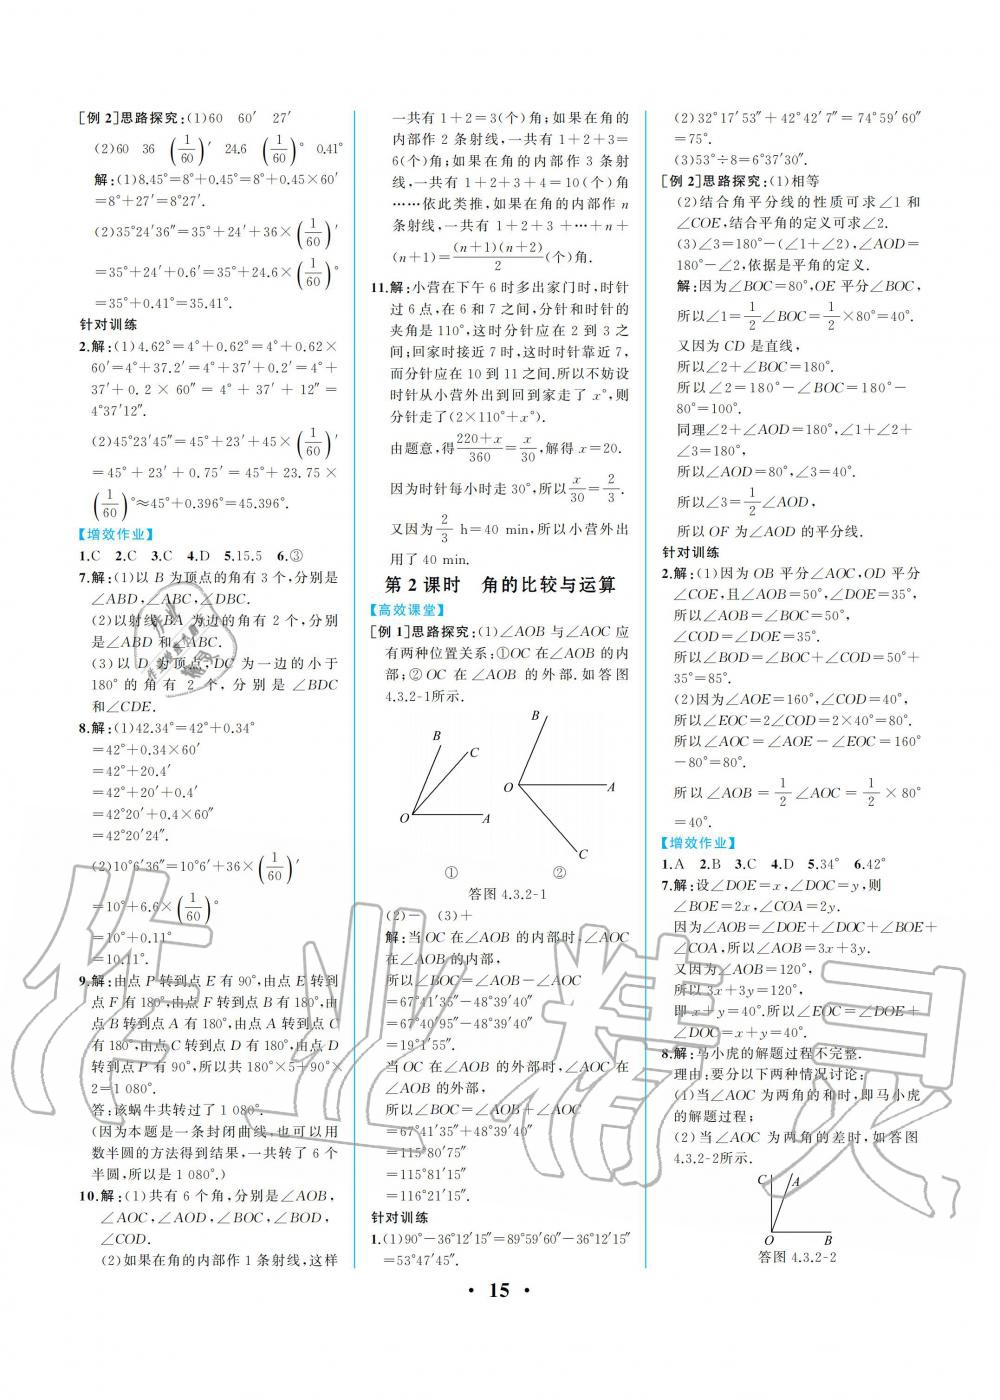 [例 2]思路探究:(1)60 60′ 27′
(2)60 36 (1/60)′ 24.6 (1/60)° 0.41°
解:(1)8.45°=8°+0.45°=8°+0.45×60′
=8°+27′=8°27′.
(2)35°24′36″=35°+24′+36×(1/60)′
=35°+24′+0.6′=35°+24.6×(1/60)°
=35°+0.41°=35.41°.
针对训练
2.解:(1)4.62°=4°+0.62°=4°+0.62×
60′=4°+37.2′=4°+37′+0.2′=4°+
37′+0.2×60″=4°+37′+12″=
4°37′12″.
(2)45°23′45″=45°+23′+45×(1/60)′
=45°+23′+0.75′=45°+23.75×
(1/60)°≈45°+0.396°=45.396°.
【增效作业】
1.C 2.C 3.C 4.D 5.15.5 6.③
7.解:(1)以 B 为顶点的角有 3 个,分别是
∠ABD,∠ABC,∠DBC.
(2)以射线 BA 为边的角有 2 个,分别
是∠ABD 和∠ABC.
(3)以 D 为顶点,DC 为一边的小于
180°的角有 2 个,分别是∠BDC
和∠CDE.
8.解:(1)42.34°=42°+0.34°
=42°+0.34×60′
=42°+20.4′
=42°+20′+0.4′
=42°20′+0.4×60″
=42°20′24″.
(2)10°6′36″=10°6′+36×(1/60)′
=10°+6.6×(1/60)°
=10°+0.11°
=10.11°.
9.解:由点 P 转到点 E 有 90°,由点 E 转到
点 F 有 180°,由点 F 转到点 B 有 180°,由
点 B 转到点 A 有 180°,由点 A 转到点 C
有 180°,由点 C 转到点 D 有 180°,由点 D
转到点 P 有 90°,所以共有 180°×5+90°×
2=1 080°.
答:该蜗牛共转过了 1 080°.
(因为本题是一条封闭曲线,也可以用
数半圆的方法得到结果,一共转了 6 个
半圆,所以是 1 080°.)
10.解:(1)共有 6 个角,分别是∠AOB,
∠AOC,∠AOD,∠BOC,∠BOD,
∠COD.
(2)如果在角的内部作 1 条射线,这样
一共有 1+2=3(个)角;如果在角的
内部作 2 条射线,一共有 1+2+3=
6(个)角;如果在角的内部作 3 条射
线,一共有 1+2+3+4=10(个)角
……依此类推,如果在角的内部作 n
条射线,一共有 1+2+3+…+n+
(n+1)=(n+1)(n+2)/2(个)角.
11.解:小营在下午 6 时多出家门时,时针
过 6 点,在 6 和 7 之间,分针和时针的
夹角是 110°,这时分针应在 2 到 3 之
间;回家时接近 7 时,这时时针靠近 7,
而分针应在 10 到 11 之间.所以不妨设
时针从小营外出到回到家走了 x°,则
分针走了(2×110°+x°).
由题意,得220+x/360=x/30,解得 x=20.
因为时针每小时走 30°,所以x/30=2/3.
又因为2/3 h=40 min,所以小营外出
用了 40 min.
第 2 课时 角的比较与运算
【高效课堂】
[例 1]思路探究:(1)∠AOB 与∠AOC 应
有两种位置关系:①OC 在∠AOB 的内
部;②OC 在∠AOB 的外部.如答图
4.3.2-1所示.
B
C
O
A
①
B
O
A
C
②
答图 4.3.2-1
(2)- (3)+
解:当 OC 在∠AOB 的内部时,∠AOC
在∠AOB 的内部,
所以∠BOC=∠AOB-∠AOC
=67°41′35″-48°39′40″
=67°40′95″-48°39′40″
=19°1′55″.
当 OC 在∠AOB 的外部时,∠AOC 在
∠AOB 的外部,
所以∠BOC=∠AOB+∠AOC
=67°41′35″+48°39′40″
=115°80′75″
=115°81′15″
=116°21′15″.
针对训练
1.(1)90°-36°12′15″=89°59′60″-36°12′15″
=53°47′45″.
(2)32°17′53″+42°42′7″=74°59′60″
=75°.
(3)53°÷8=6°37′30″.
[例 2]思路探究:(1)相等
(2)结合角平分线的性质可求∠1 和
∠COE,结合平角的定义可求∠2.
(3)∠3=180°-(∠1+∠2),∠AOD=
180°-∠2,依据是平角的定义.
解:因为∠BOC=80°,OE 平分∠BOC,
所以∠1=1/2∠BOC=1/2×80°=40°.
又因为 CD 是直线,
所以∠2+∠BOC=180°.
所以∠2=180°-∠BOC=180°-
80°=100°.
同理∠2+∠AOD=180°,∠1+∠2+
∠3=180°,
所以∠AOD=80°,∠3=40°.
所以∠3=1/2∠AOD,
所以 OF 为∠AOD 的平分线.
针对训练
2.解:(1)因为 OB 平分∠AOC,OD 平分
∠COE,且∠AOB=50°,∠DOE=35°,
所以∠AOB=∠BOC=50°,
∠COD=∠DOE=35°.
所以∠BOD=∠BOC+∠COD=50°+
35°=85°.
(2)因为∠AOE=160°,∠COD=40°,
所以∠EOC=2∠COD=2×40°=80°.
所以∠AOC=∠AOE-∠EOC=160°
-80°=80°.
所以∠AOB=1/2∠AOC=1/2×80°
=40°.
【增效作业】
1.A 2.B 3.C 4.D 5.34° 6.42°
7.解:设∠DOE=x,∠DOC=y,则
∠BOE=2x,∠COA=2y.
因为∠AOB=∠DOE+∠DOC+∠BOE+
∠COA,所以∠AOB=3x+3y.
又因为∠AOB=120°,
所以 3x+3y=120°,
即 x+y=40°.所以∠EOC=∠DOE+
∠DOC=x+y=40°.
8.解:马小虎的解题过程不完整.
理由:要分以下两种情况讨论:
(1)当∠AOC 为两角的和时,即马小虎
的解题过程;
(2)当∠AOC 为两角的差时,如答图
4.3.2-2所示.
C
A
O
B
答图 4.3.2-2
· 15 ·
作业精灵